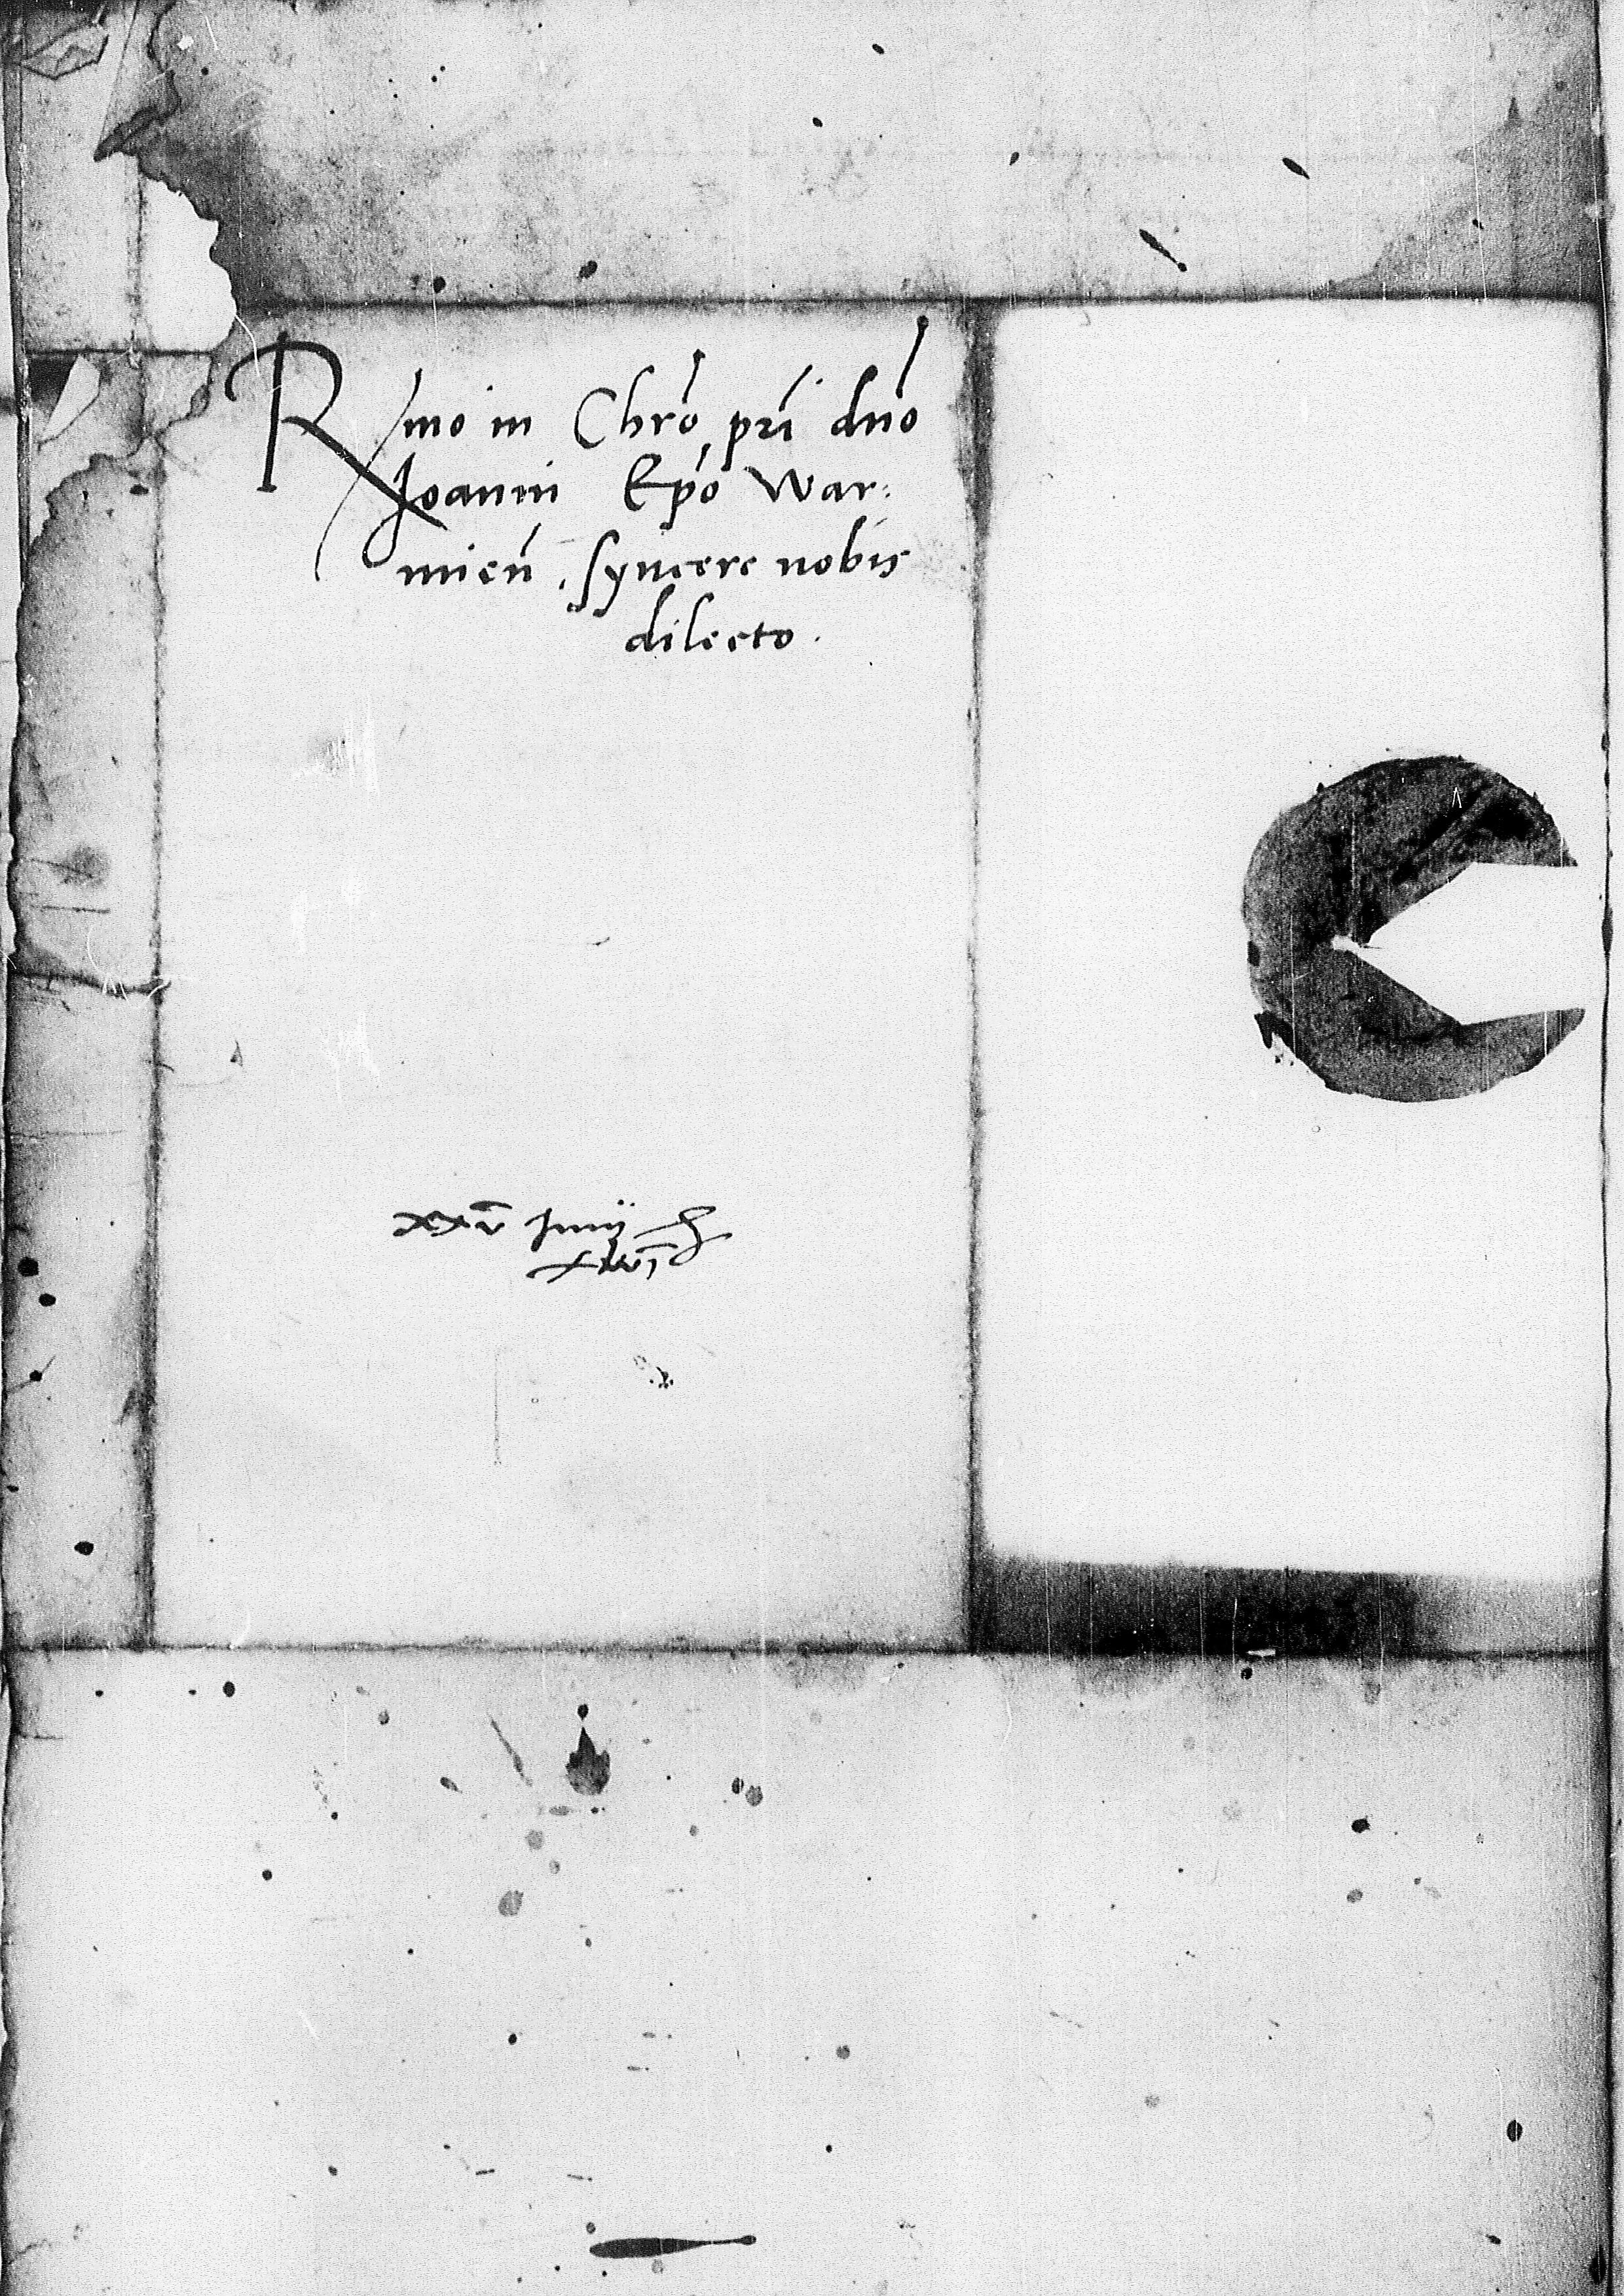 Rmo in Chro pri dno
Joanni Epo War:
mien, syncere nobis
dilecto.
xxv Junij
xlvi